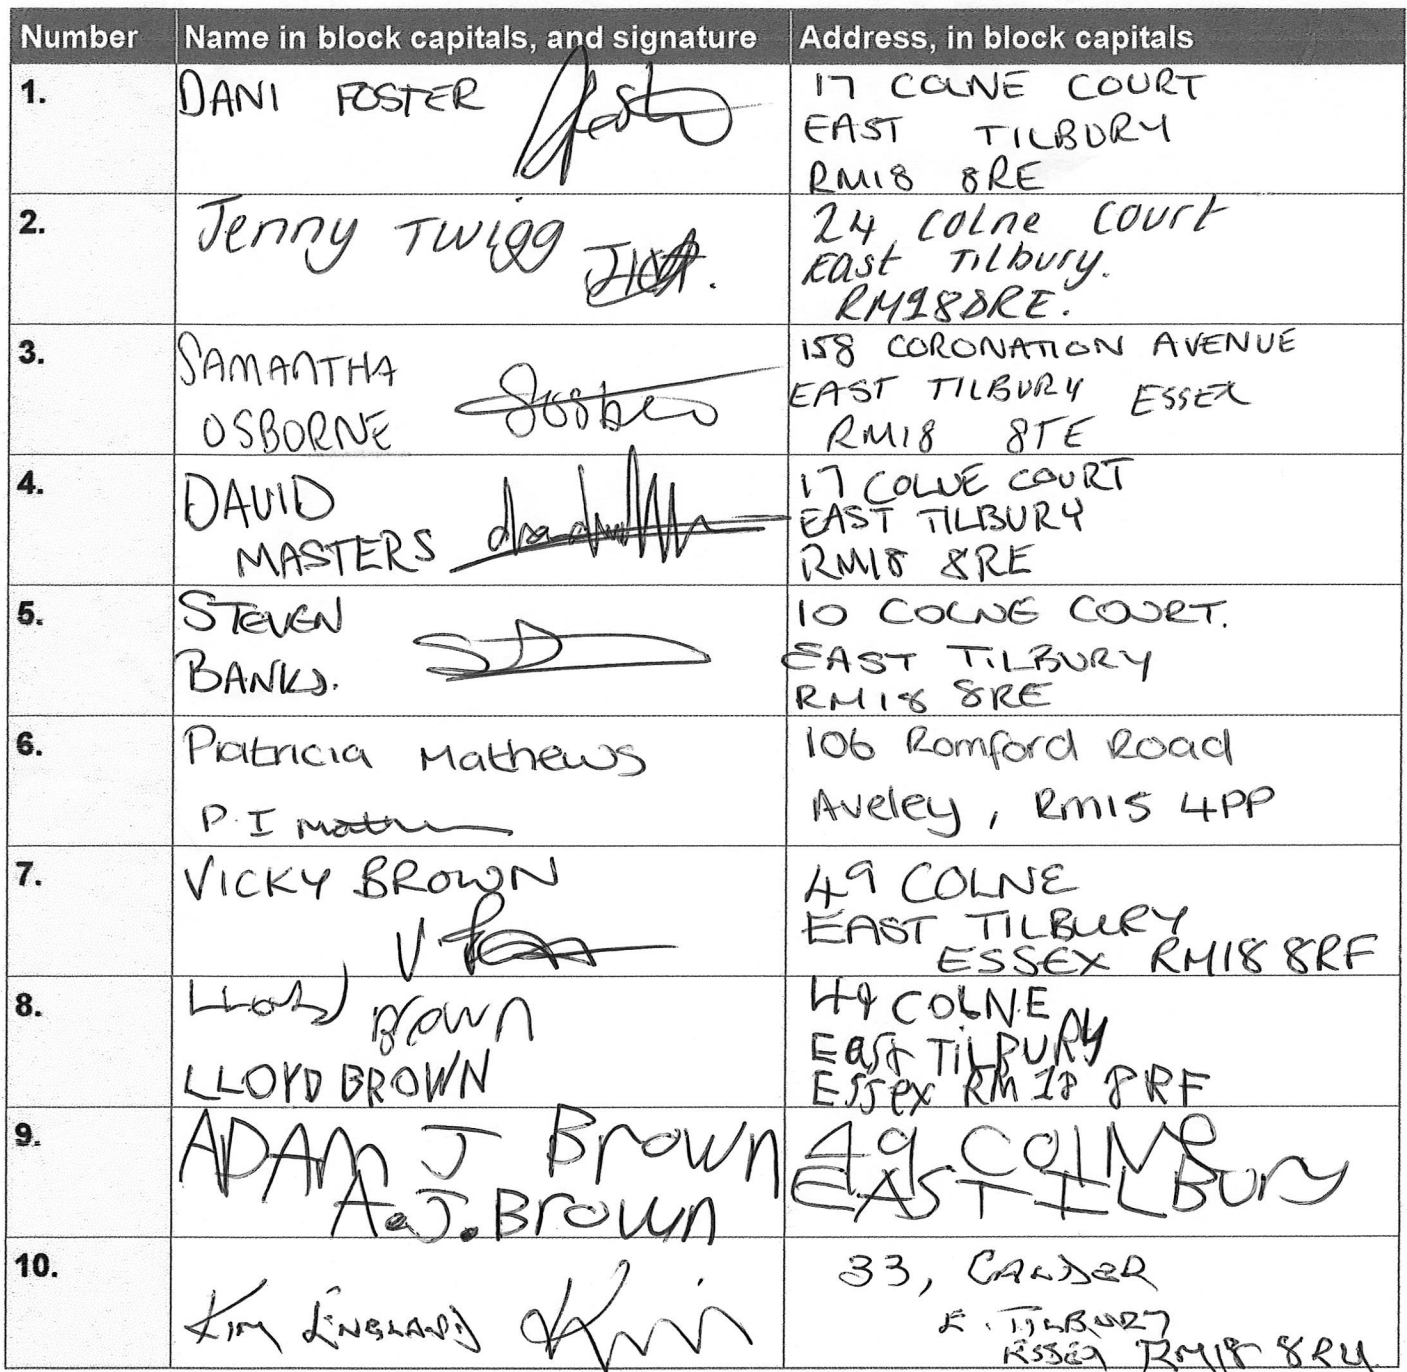 Number Name in block capitals, and signature Address, in block capitals
1. DANI FOSTER
17 COLNE COURT
EAST TILBURY
RM18 8RE
2. Jenny Twigg
24 Colne Court
East Tilbury.
RM188RE.
3. SAMANTHA
OSBORNE
158 CORONATION AVENUE
EAST TILBURY ESSEX
RM18 8TE
4. DAVID
MASTERS
17 COLNE COURT
EAST TILBURY
RM18 8RE
5. STEVEN
BANKS.
10 COLNE COURT.
EAST TILBURY
RM18 8RE
6. Patricia Mathews
P. I
106 Romford Road
Aveley, RM15 4PP
7. VICKY BROWN
V.
49 COLNE
EAST TILBURY
ESSEX RM18 8RF
8. LLOYD Brown
LLOYD BROWN
49 COLNE
East TILBURY
Essex RM 18 8RF
9. ADAM J Brown
A.J. Brown
49 COLNE
EAST TILBURY
10. Kim England Kim
33, CALDER
E. TILBURY
ESSEX RM18 8RU